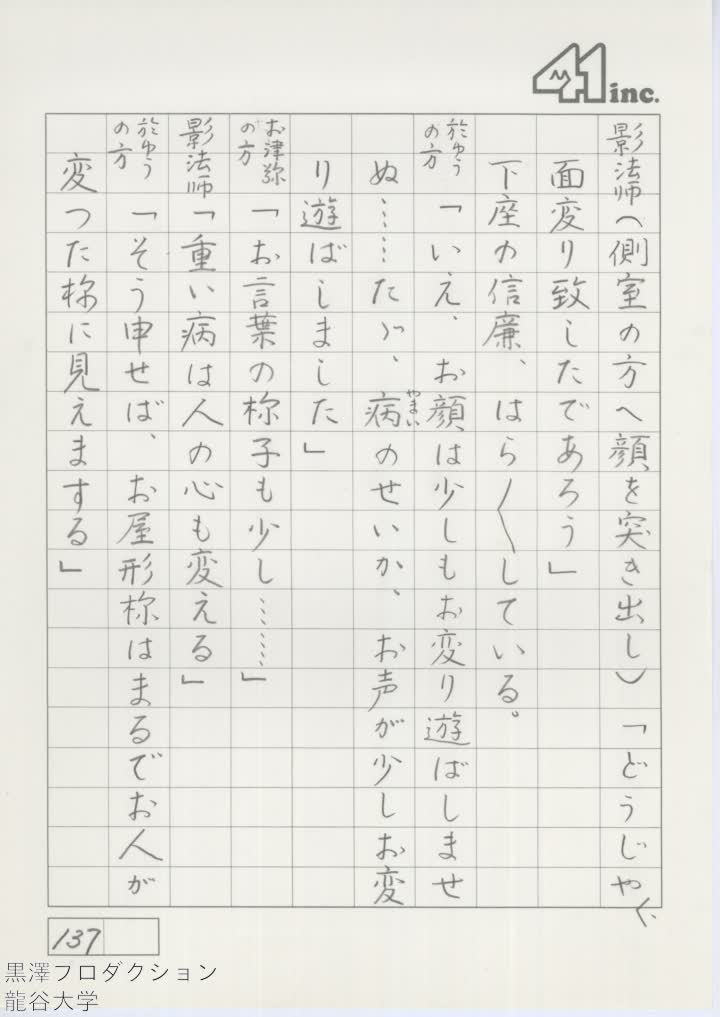 41 inc.
影法師(側室の方へ顔を突き出し)「どうじゃ、
面変り致したであろう」
下座の信廉、はら〱している。
於ゆうの方「いえ、お顔は少しもお変り遊ばしませ
ぬ……たゞ、病のせいか、お声が少しお変
やまい
り遊ばしました」
お津弥の方「お言葉の様子も少し……」
影法師「重い病は人の心も変える」
於ゆうの方「そう申せば、お屋形様はまるでお人が
変つた様に見えまする」
137
黒澤プロダクション
龍谷大学